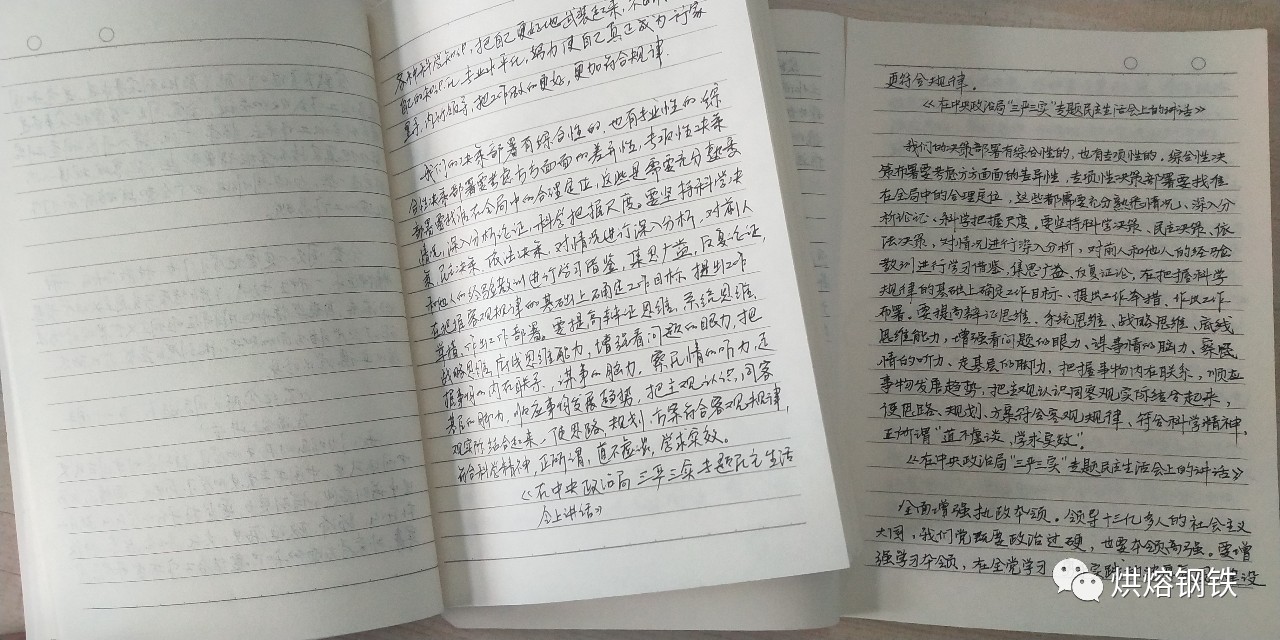 各种科学知识，把自己更好地武装起来，不
配的知识化、专业水平化，努力使自己真正成为行家
里手、内行领导，把工作做的更好，更加符合规律。
我们的决策部署有综合性的，也有专业性的综
合性决策部署要考虑方方面面的差异性，专项性决策
部署要找准在全局中的合理定位，这些是需要充分熟悉
情况，深入分析论证，科学把握尺度。要坚持科学决
策、民主决策、依法决策，对情况进行深入分析，对前人
和他人的经验教训进行学习借鉴，集思广益，反复论证，
在把握客观规律的基础上确定工作目标，提出工作
举措，作出工作部署。要提高辩证思维、系统思维
战略思维、底线思维能力，增强看问题的眼力，把
握事物的内在联系，谋事的脑力、察民情的听力、走
基层的脚力，顺应事物发展趋势，把主观认识，同客
观实际结合起来，使思路、规划、方案符合客观规律，
符合科学精神，正所谓，道不虚谈，学求实效。
《在中央政治局三严三实专题民主生活
会上讲话》
更符合规律。
《在中央政治局“三严三实”专题民主生活会上的讲话》
我们的决策部署有综合性的，也有专项性的。综合性决
策部署要考虑方方面面的差异性，专项性决策部署要找准
在全局中的合理定位，这些都需要充分熟悉情况、深入分
析论证、科学把握尺度。要坚持科学决策、民主决策、依
法决策，对情况进行深入分析，对前人和他人的经验
教训进行学习借鉴，集思广益、反复证论，在把握科学
规律的基础上确定工作目标、提出工作举措，作出工作
布署。要提高辩证思维、系统思维、战略思维、底线
思维能力，增强看问题的眼力、谋事情的脑力、察民
情的听力、走基层的脚力，把握事物内在联系，顺应
事物发展趋势，把主观认识同客观实际结合起来，
使思路、规划、方案符合客观规律、符合科学精神，
正所谓“道不虚谈，学求实效”。
《在中央政治局“三严三实”专题民主生活会上的讲话》
全面增强执政本领。领导十三亿多人的社会主义
大国，我们党既要政治过硬，也要本领高强。要增
强学习本领，在全党学习
设
烘熔钢铁